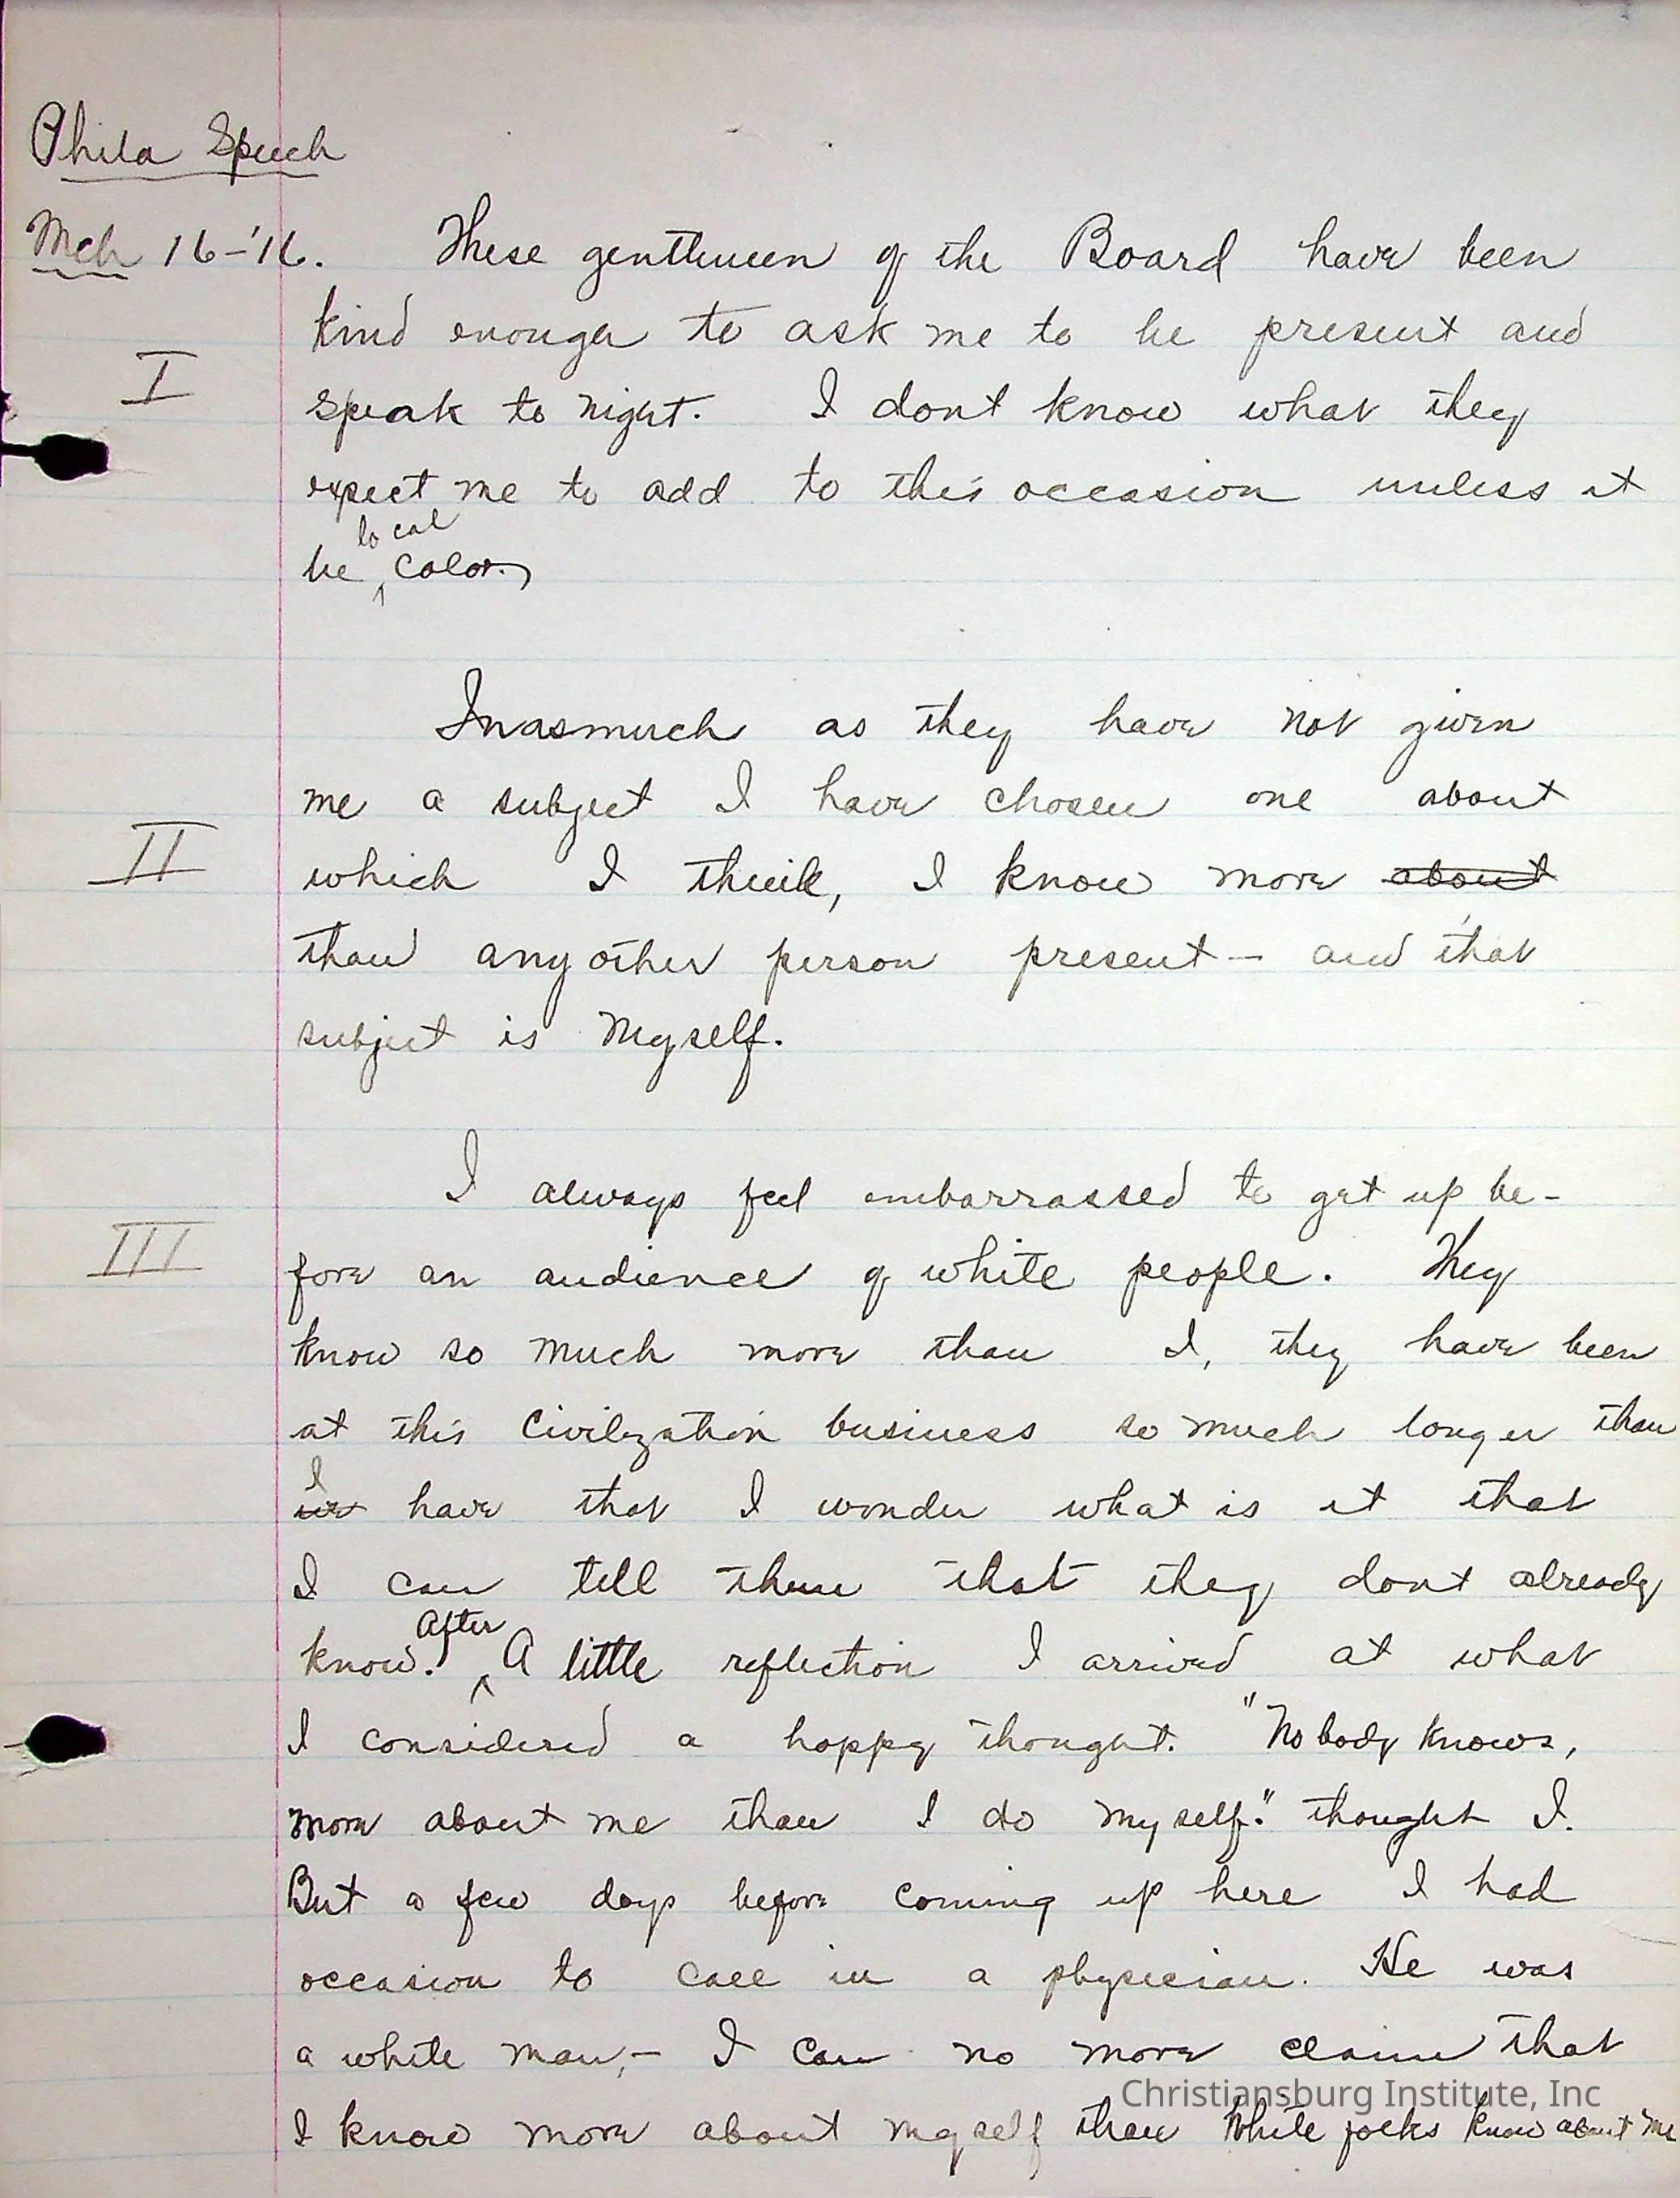 Phila Speech
Mch 16-'16. These gentlemen of the Board have been
kind enough to ask me to be present and
I
speak to night. I dont know what they
expect me to add to this occasion unless it
local
be ^ color.
Inasmuch as they have not given
me a subject I have chosen one about
II
which I think, I know more about
than any other person present - and that
subject is Myself.
I always feel embarrassed to get up be-
III
fore an audience of white people. They
know so much more than I, they have been
at this Civilization business so much longer than
I
we have that I wonder what is it that
I can tell them that they dont already
After
know. ^ A little reflection I arrived at what
I considered a happy thought. "Nobody knows,
more about me than I do myself." thought I.
But a few days before coming up here I had
occasion to call in a physician. He was
a white man,- I can no more claim that
Christiansburg Institute, Inc
I know more about myself than White folks know about me